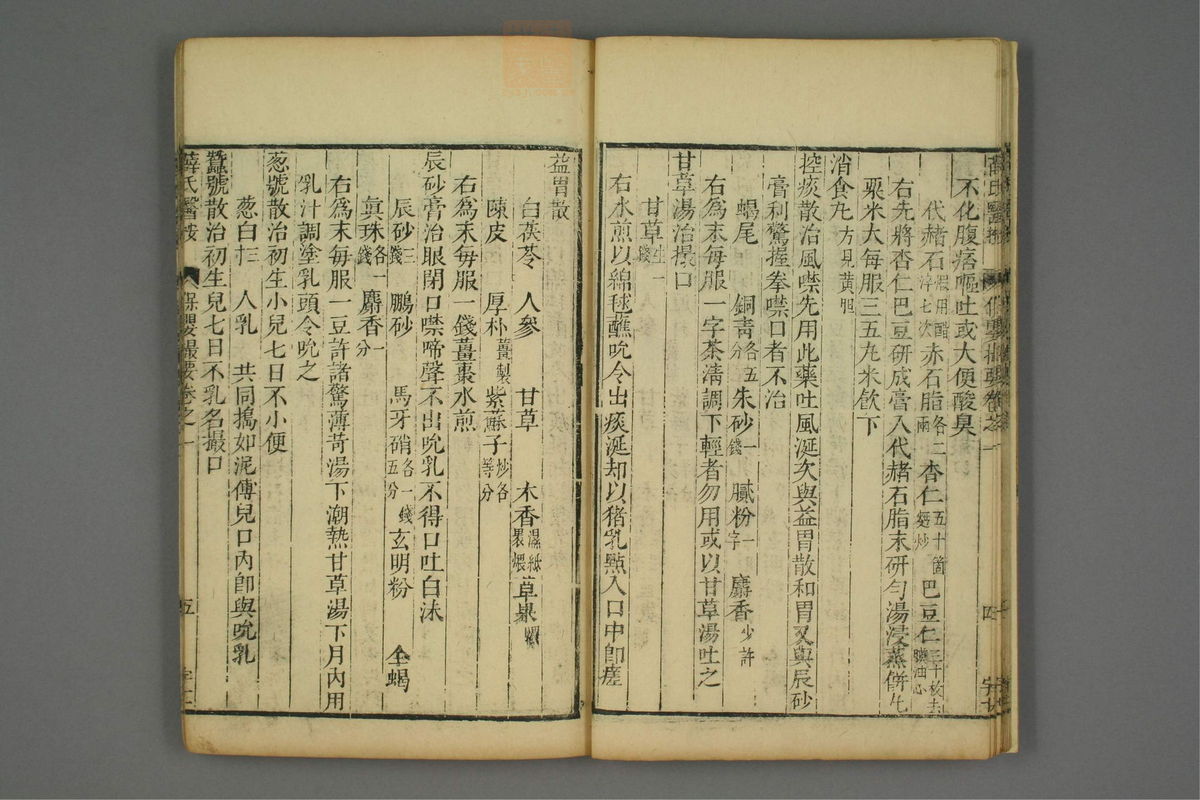 薛氏醫按 保嬰撮要卷之一 四
不化腹痞嘔吐或大便酸臭
代赭石煅用醋淬七次 赤石脂各二兩 杏仁五十箇麩炒 巴豆仁三十枚去膜油心
右先將杏仁巴豆研成膏入代赭石脂末研勻湯浸蒸餅丸
粟米大每服三五丸米飮下
消食丸方見黃疸
控痰散治風噤先用此藥吐風涎次與益胃散和胃又與辰砂
膏利驚握拳噤口者不治
蝎尾 銅靑各五分 朱砂一錢 膩粉一字 麝香少許
右爲末每服一字茶淸調下輕者勿用或以甘草湯吐之
甘草湯治撮口
甘草生一錢
右水煎以綿毬蘸吮令出痰涎却以猪乳㸃入口中卽瘥
益胃散
白茯苓 人參 甘草 木香濕紙裹煨 草菓煨
陳皮 厚朴薑製 紫蘇子炒各等分
右爲末每服一錢薑棗水煎
辰砂膏治眼閉口噤啼聲不出吮乳不得口吐白沫
辰砂三錢 鵬砂 馬牙硝各一錢五分 玄明粉 全蝎
眞珠各一錢 麝香一分
右爲末每服一豆許諸驚薄荷湯下潮熱甘草湯下月內用
乳汁調塗乳頭令吮之
葱號散治初生小兒七日不小便
葱白三寸 人乳 共同搗如泥傅兒口內卽與吮乳
蠶號散治初生兒七日不乳名撮口
薛氏醫按 保嬰撮要卷之一 五